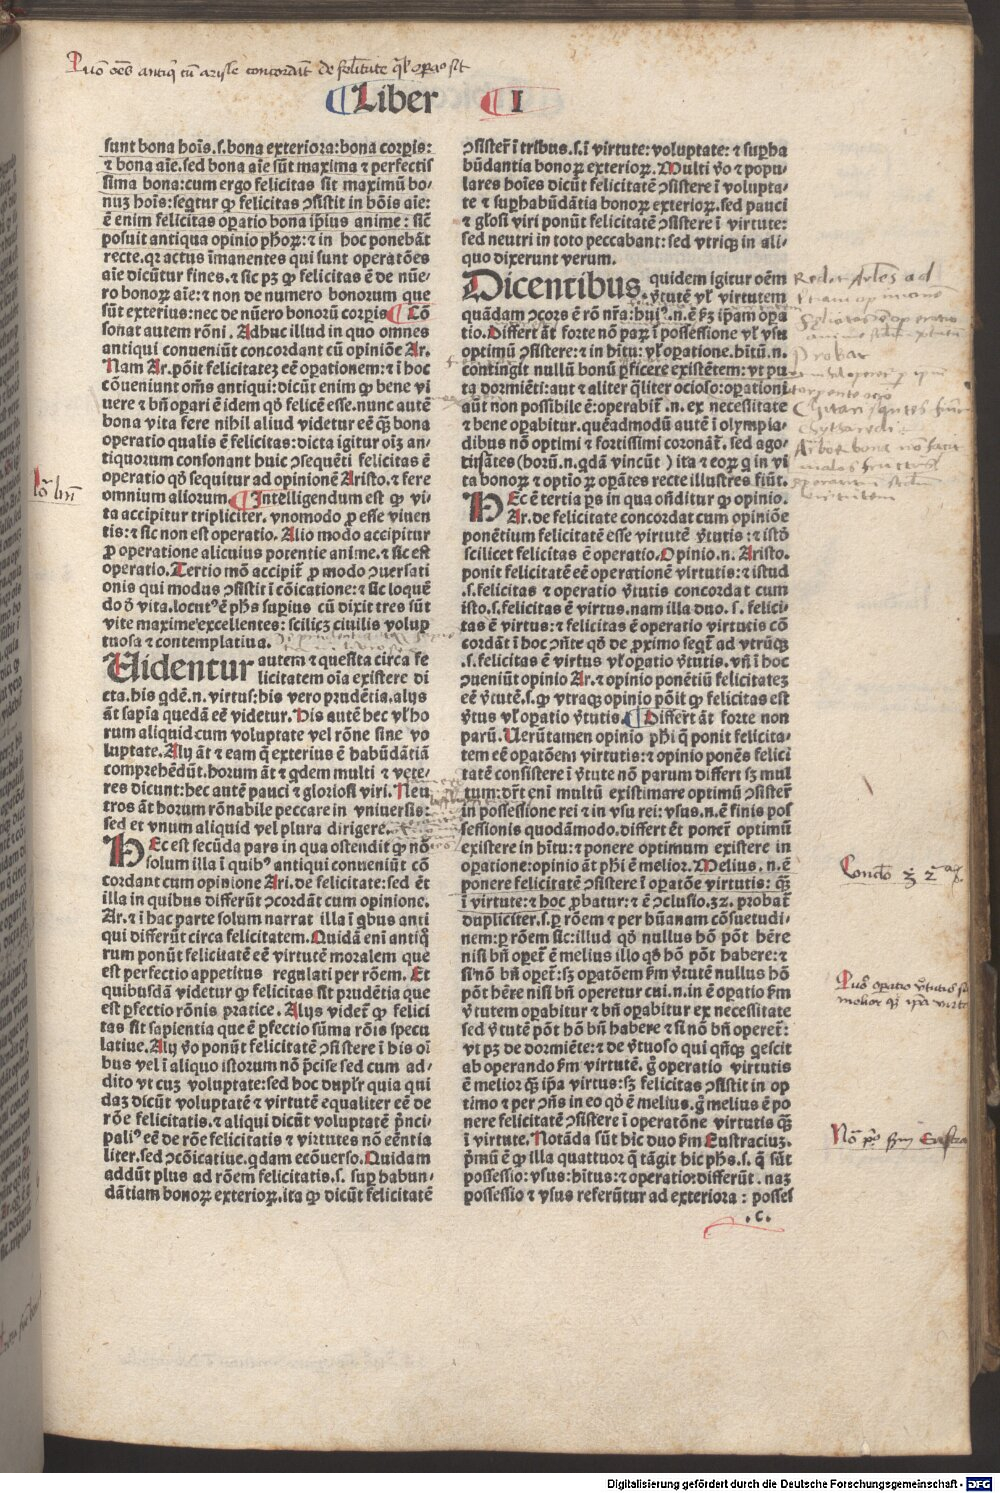 Quō oēs antiqi cū aristle concordāt de felitate
Liber I
sunt bona hoīs.s.bona exteriora:bona corpis:
⁊ bona aīe.sed bona aīe sūt maxima ⁊ perfectis
sima bona:cum ergo felicitas sit maximū bo-
nuꝫ hoīs:seqtur ꝙ felicitas ꝯsistit in bōis aīe:
ē enim felicitas oꝑatio bona ipīus anime: sic̄
posuit antiqua opinio phoꝝ:⁊ in hoc ponebāt
recte.qꝛ actus īmanentes qui sunt operatōes
aīe dicūtur fines.⁊ sic pꝫ ꝙ felicitas ē de nūe-
ro bonoꝝ aīe:⁊ non de numero bonorum que
sūt exterius:nec de nūero bonorū corpis Cō
sonat autem rōni. Adhuc illud in quo omnes
antiqui conueniūt concordant cū opiniōe Ar.
Nam Ar.pōit felicitateꝫ eē oꝑationem:⁊ ī hoc
cōueniunt oms̄ antiqui:dicūt enim ꝙ bene vi
uere ⁊ bn̄ oꝑari ē idem qđ felicē esse.nunc autē
bona vita fere nihil aliud videtur eē qꝫ bona
operatio qualis ē felicitas:dicta igitur oīꝫ an-
tiquorum consonant huic ꝯsequēti felicitas ē
operatio qđ sequitur ad opinionē Aristo.⁊ fere
omnium aliorum. Intelligendum est ꝙ vi
ta accipitur tripliciter. vnomodo ꝓ esse viuen
tis:⁊ sic non est operatio. Alio modo accipitur
ꝓ operatione alicuius potentie anime.⁊ sic est
operatio. Tertio mō accipit̄ ꝓ modo ꝯuersati
onis qui modus ꝯsistit ī cōicatione:⁊ sic loquē
do đ vita.locutꝰ ē phs supius cū dixit tres sūt
vite maxime excellentes: scilicꝫ ciuilis volup
tuosa ⁊ contemplatiua.
Uidentur autem ⁊ quesita circa fe
licitatem oīa existere di
cta.his qdē.n. virtus:his vero prudētia.alijs
āt sapīa quedā eē videtur. His autē hec vl̓ ho
rum aliquid cum voluptate vel rōne sine vo
luptate. Alij āt ⁊ eam q̄ exterius ē habūdātiā
comprehēdūt.horum āt ⁊ qdem multi ⁊ vete-
res dicunt:hec autē pauci ⁊ gloriosi viri. Neu
tros āt horum rōnabile peccare in vniuersis:
sed et vnum aliquid vel plura dirigere.
HEc est secūda pars in qua ostendit ꝙ nō
solum illa ī quibꝰ antiqui conueniūt cō
cordant cum opinione Ari.de felicitate:sed ēt
illa in quibus differūt ꝯcordāt cum opinione.
Ar.⁊ ī hac parte solum narrat illa ī qbus anti
qui differūt circa felicitatem. Quidā enī antiq̄
rum ponūt felicitatē eē virtutē moralem que
est perfectio appetitus regulati per rōem. Et
quibusdā videtur ꝙ felicitas sit prudētia que
est ꝑfectio rōnis pratice. Alijs videt̄ ꝙ felici
tas sit sapientia que ē ꝑfectio sūma rōis specu
latiue. Alij v̄o ponūt felicitatē ꝯsistere ī his oī
bus vel ī aliquo istorum nō p̄cise sed cum ad-
dito vt cuꝫ voluptate:sed hoc duplr̄ quia qui
daꝫ dicūt voluptatē ⁊ virtutē equaliter eē de
rōe felicitatis.⁊ aliqui dicūt voluptatē p̄nci-
paliꝰ eē de rōe felicitatis ⁊ virtutes nō eēntia
liter.sed ꝯcōicatiue.qdam ecōuerso. Quidam
addūt plus ad rōem felicitatis.s. suꝑ habun-
dātiam bonoꝝ exterioꝝ.ita ꝙ dicūt felicitatē
ꝯsister̄ ī tribus.s.ī virtute:voluptate:⁊ suꝑha
būdantia bonoꝝ exterioꝝ. Multi v̄o ⁊ popu-
lares hoīes dicūt felicitatē ꝯsistere ī volupta-
te ⁊ suꝑhabūdātia bonoꝝ exterioꝝ.sed pauci
⁊ glosi viri ponūt felicitatē ꝯsistere ī virtute:
sed neutri in toto peccabant: sed vtriqꝫ in ali-
quo dixerunt verum.
Dicentibus quidem igitur oēm
v̄tutē vl̓ virtutem
quādam ꝯcors ē rō nr̄a:huiꝰ.n.ē ẜꝫ ip̄am oꝑa
tio. Differt āt forte nō paꝝ ī possessione vl̓ vsu
optimū ꝯsistere:⁊ in hītu: vl̓ oꝑatione.hītū.n.
contingit nullū bonū ꝑficere existētem:vt pu
ta dormiēti:aut ⁊ aliter qliter ocioso:oꝑationi
aūt non possibile ē:operabit̄ .n. ex necessitate
⁊ bene oꝑabitur.quēadmodū autē ī olympia-
dibus nō optimi ⁊ fortissimi coronāt̄.sed ago-
tiꝫātes (horū.n.qdā vincūt) ita ⁊ eoꝝ q in vi
ta bonoꝝ ⁊ optio ꝝ oꝑātes recte illustres fiūt.
HEc ē tertia ps in qua oñditur ꝙ opinio.
Ar.de felicitate concordat cum opiniōe
ponētium felicitatē esse virtutē v̄tutis:⁊ istō
scilicet felicitas ē operatio. Opinio.n. Aristo.
ponit felicitatē eē operationē virtutis:⁊ istud
.s.felicitas ⁊ operatio v̄tutis concordat cum
isto.s.felicitas ē virtus.nam illa duo.s. felici-
tas ē virtus:⁊ felicitas ē operatio virtutis cō
cordāt ī hoc ꝯn̄te qđ de ꝓximo seqt̄ ad vtrūqꝫ
.s.felicitas ē virtus vl̓ oꝑatio v̄tutis. vn̄ ī hoc
ꝯueniūt opinio Ar.⁊ opinio ponētiū felicitateꝫ
eē v̄tutē.s.ꝙ vtraqꝫ opinio pōit ꝙ felicitas est
v̄tus vl̓ oꝑatio v̄tutis. Differt āt forte non
parū. Uerūtamen opinio phi q̄ ponit felicita-
tem eē oꝑatōem virtutis:⁊ opinio ponēs felici
tatē consistere ī v̄tute nō parum differt sꝫ mul
tum:dr̄t enī multū existimare optimū ꝯsister̄
in possessione rei ⁊ in vsu rei: vsus.n.ē finis pos
sessionis quodāmodo.differt ēt ponet̄ optimū
existere in hītu:⁊ ponere optimum existere in
oꝑatione:opinio āt phi ē melior. Melius.n.ē
ponere felicitatē ꝯsistere ī oꝑatōe virtutis: qꝫ̄
ī virtute:⁊ hoc ꝓbatur:⁊ ē ꝯclusio.32. probat̄
dupliciter.s.ꝑ rōem ⁊ per hūanam cōsuetudi-
nem:ꝑ rōem sic:illud qđ nullus hō pōt hēre
nisi bn̄ oꝑet̄ ē melius illo qđ hō pōt habere:⁊
si nō bn̄ oꝑet̄:sꝫ oꝑatōem ẜm v̄tutē nullus hō
pōt hēre nisi bn̄ operetur cui.n.in ē oꝑatio ẜm
v̄tutem oꝑabitur ⁊ bn̄ oꝑabitur ex necessitate
sed v̄tutē pōt hō bn̄ habere ⁊ si nō bn̄ operet̄:
vt pꝫ de dormiēte:⁊ de v̄tuoso qui qn̄qꝫ q̄escit
ab operando ẜm virtutē. g̊ operatio virtutis
ē melior qꝫ ip̄a virtus:sꝫ felicitas ꝯsistit in op
timo ⁊ per ꝯn̄s in eo qđ ē melius.g̊ melius ē po
nere felicitatē ꝯsistere ī oꝑatōne virtutis qꝫ̄
ī virtute. Notāda sūt hic duo ẜm Eustraciuꝫ.
p̄mū ē ꝙ illa quattuor q̄ tāgit hic phs.s. q̄ sūt
possessio:vsus:hītus:⁊ operatio:differūt. naꝫ
possessio ⁊ vsus referūtur ad exteriora: posses
.c.
Probat
Conclō 32
Quō oꝑatio v̄tutis sit
melior qꝫ ipa virtus
Nō pº ẜm Eustra
Digitalisierung gefördert durch die Deutsche Forschungsgemeinschaft - DFG